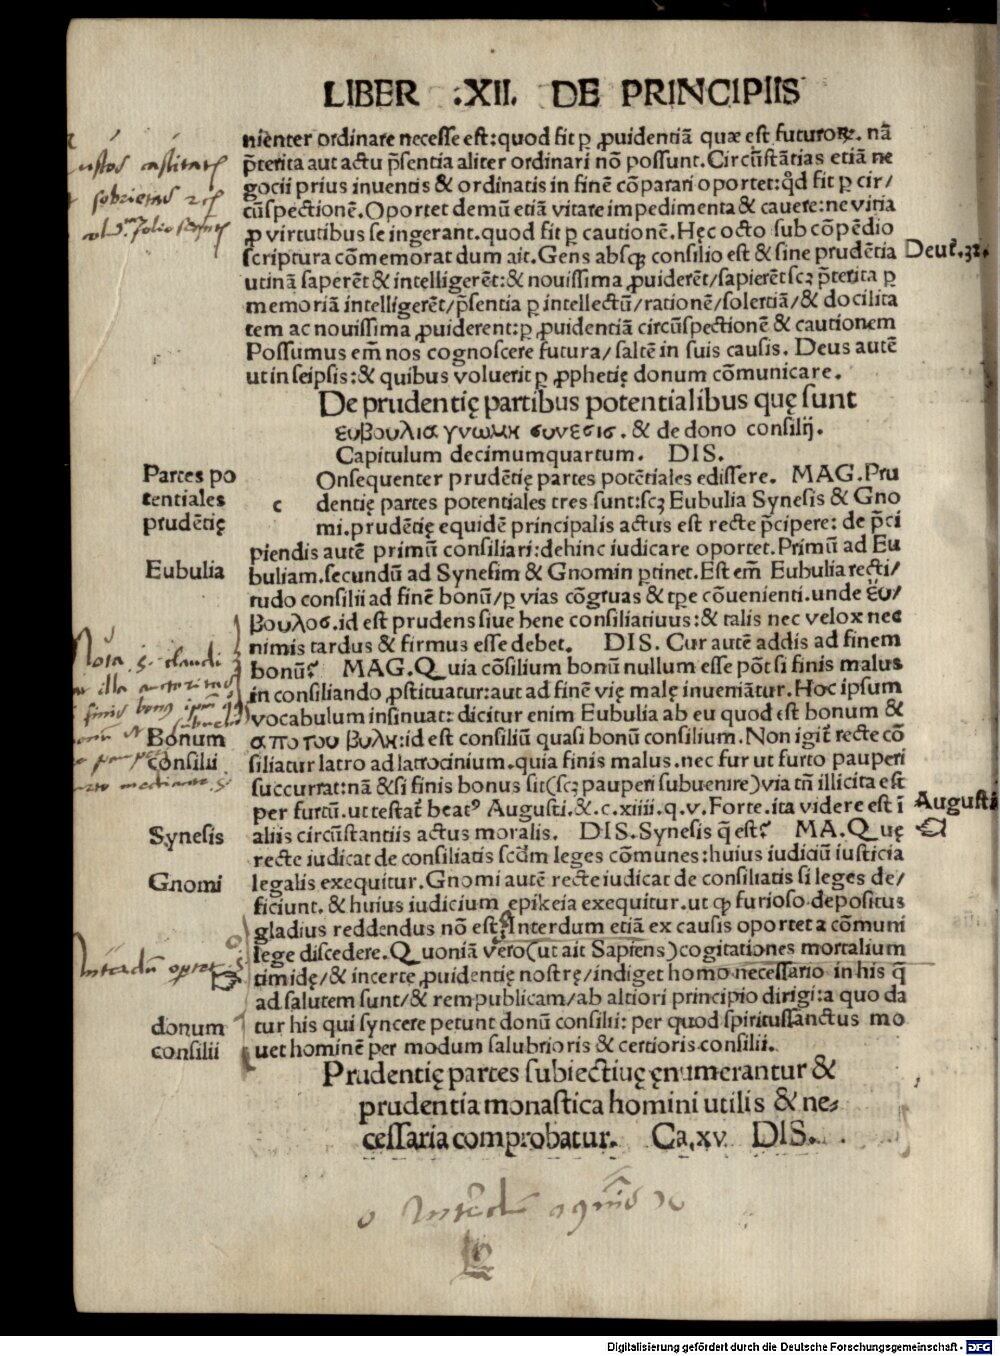 LIBER .XII. DE PRINCIPIIS
nienter ordinare necesse est:quod fit ꝑ ꝓuidentiā quæ est futuroꝝ. nā
p̄terita aut actu p̄sentia aliter ordinari nō possunt.Circūstātias etiā ne
gocii prius inuentis & ordinatis in finē cōparari oportet:q̇d fit ꝑ cir/
cūspectionē.Oportet demū etiā vitare impedimenta & cauere:ne vitia
ꝓ virtutibus se ingerant.quod fit ꝑ cautionē.Hęc octo sub cōpēdio
scriptura cōmemorat dum ait.Gens absqꝫ consilio est & sine prudētia
Deut̄.32.
utinā saperēt & intelligerēt:& nouissima ꝓuiderēt/sapierēt scꝫ p̄terita ꝑ
memoriā intelligerēt/p̄sentia ꝑ intellectū/rationē/solertiā/& docilita
tem ac nouissima ꝓuiderent:ꝑ ꝓuidentiā circūspectionē & cautionem
Possumus em̄ nos cognoscere futura/saltē in suis causis. Deus autē
ut in seipsis:& quibus voluerit ꝑ ꝓphetię donum cōmunicare.
De prudentię partibus potentialibus quę sunt
ευβουλια γνωμη συνεσις. & de dono consilij.
Capitulum decimumquartum. DIS.
Partes po
tentiales
prudētię
Onsequenter prudētię partes potētiales edissere. MAG.Pru
c dentię partes potentiales tres sunt:scꝫ Eubulia Synesis & Gno
mi.prudētię equidē principalis actus est recte p̄cipere: de p̄ci
piendis autē primū consiliari:dehinc iudicare oportet.Primū ad Eu
Eubulia
buliam.secundū ad Synesim & Gnomin ꝑtinet.Est em̄ Eubulia recti/
tudo consilii ad finē bonū/ꝑ vias cōgruas & tꝑe cōuenienti.unde ευ/
βουλος.id est prudens siue bene consiliatiuus:& talis nec velox nec
nimis tardus & firmus esse debet. DIS. Cur autē addis ad finem
bonū? MAG.Quia cōsilium bonū nullum esse pōt si finis malus
in consiliando ꝓstituatur:aut ad finē vię malę inueniātur.Hoc ipsum
vocabulum insinuat: dicitur enim Eubulia ab eu quod est bonum &
Bonum
consilii
απο του βυλη:id est consiliū quasi bonū consilium.Non igit̄ recte cō
siliatur latro ad latrocinium.quia finis malus.nec fur ut furto pauperi
succurrat:nā & si finis bonus sit(scꝫ pauperi subuenire)via tn̄ illicita est
per furtū.ut testat̄ beatꝰ Augusti.&.c.xiiii.q.v.Forte.ita videre est ī
Augusti
Synesis
aliis circūstantiis actus moralis. DIS.Synesis q̄ est? MA.Quę
recte iudicat de consiliatis scd̄m leges cōmunes:huius iudiciū iusticia
Gnomi
legalis exequitur.Gnomi autē recte iudicat de consiliatis si leges de/
ficiunt. & huius iudicium epikeia exequitur.ut qꝙ furioso depositus
gladius reddendus nō est. Interdum etiā ex causis oportet a cōmuni
lege discedere.Quoniā vero(ut ait Sapiens)cogitationes mortalium
timidę/& incerte ꝓuidentię nostrę/indiget homo necessario in his q̄
ad salutem sunt/& rempublicam/ab altiori principio dirigi:a quo da
donum
consilii
tur his qui syncere petunt donū consilii: per quod spiritussanctus mo
uet hominē per modum salubrioris & certioris consilii.
Prudentię partes subiectiuę ęnumerantur &
prudentia monastica homini utilis & ne⸗
cessaria comprobatur. Ca.xv DIS.
Digitalisierung gefördert durch die Deutsche Forschungsgemeinschaft - DFG